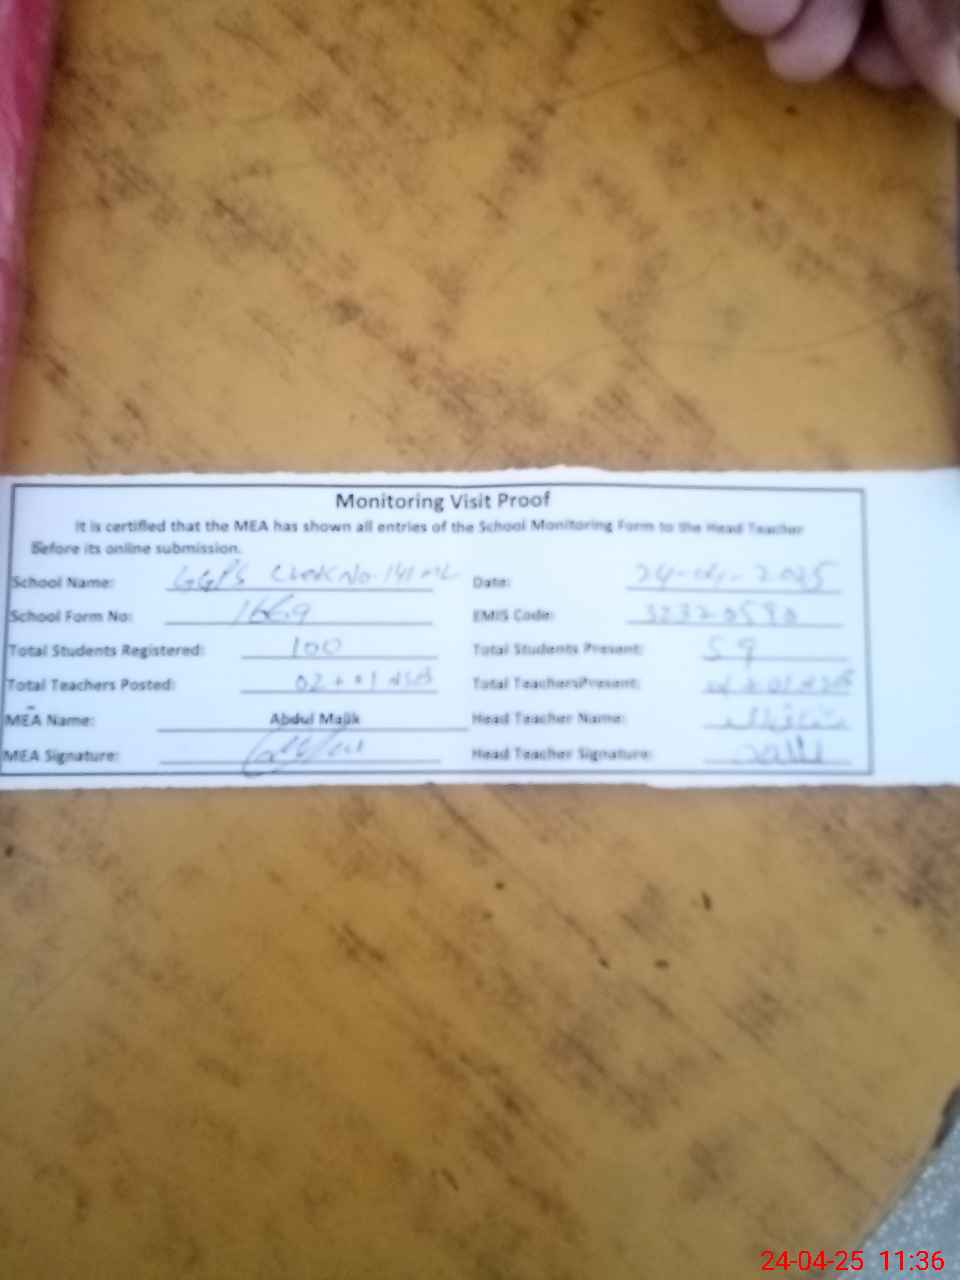 Monitoring Visit Proof
It is certified that the MEA has shown all entries of the School Monitoring Form to the Head Teacher
Before its online submission.
School Name: GGPS Chak No. 141 ML Date: 24-04-2025
School Form No: EMIS Code:
Total Students Registered: 100 Total Students Present: 59
Total Teachers Posted: 02 + 01 Total TeachersPresent:
MEA Name: Abdul Malik Head Teacher Name:
MEA Signature: Head Teacher Signature:
24-04-25 11:36